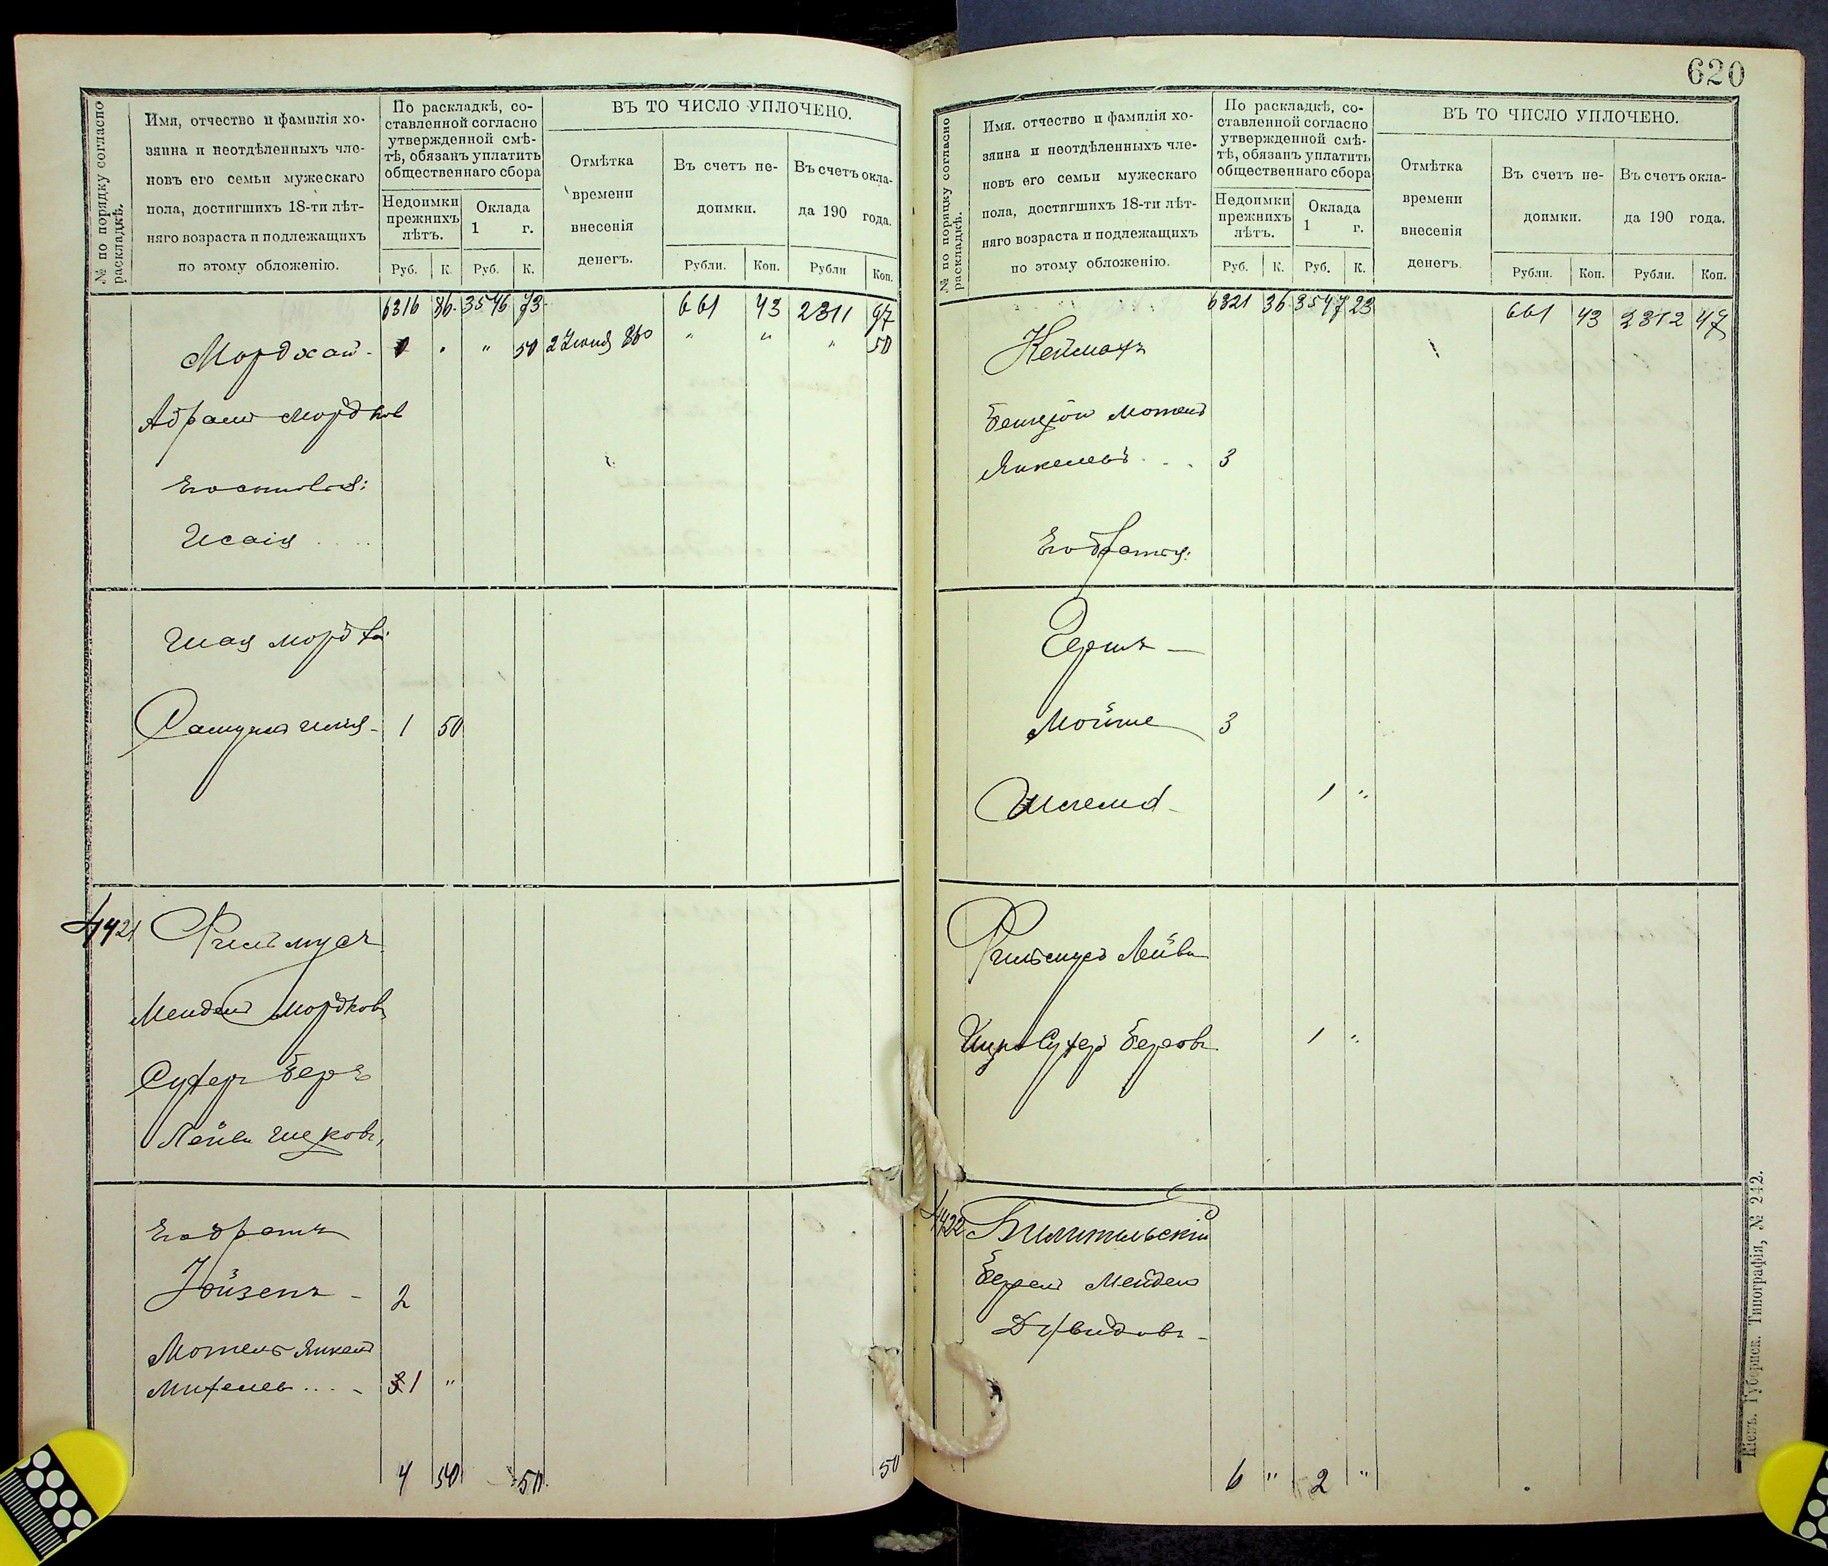 620
№ по порядку согласно раскладкѣ.
Имя, отчество и фамилія хо-
зяина и неотдѣленныхъ чле-
новъ его семьи мужескаго
пола, достигшихъ 18-ти лѣт-
няго возраста и подлежащихъ
по этому обложенію.
По раскладкѣ, со-
ставленной согласно
утвержденной смѣ-
тѣ, обязанъ уплатить
общественнаго сбора
Недоимки
прежнихъ
лѣтъ.
Оклада
1 г.
Руб. К. Руб. К.
ВЪ ТО ЧИСЛО УПЛОЧЕНО.
Отмѣтка
времени
внесенія
денегъ.
Въ счетъ не-
доимки.
Въ счетъ окла-
да 190 года.
Рубли. Коп. Рубли Коп.
6316 86 3546 73 661 43 2311 97
Мордхай - " " 50 2 Іюня " " " 50
Абрамъ Мордков
Его сыновья:
Исаія
Шая Мордк
1 50
4421 Фильмусъ
Мендель Мордковъ
Сухеръ Беръ
Лейба Ицковъ,
Его братъ
Іойзепъ - 2
Мотель Янкель
Михелев... - 1 "
4 50 50 50
№ по порядку согласно раскладкѣ.
Имя. отчество и фамилія хо-
зяина и неотдѣленныхъ чле-
новъ его семьи мужескаго
пола, достигшихъ 18-ти лѣт-
няго возраста и подлежащихъ
по этому обложенію.
По раскладкѣ, со-
ставленной согласно
утвержденной смѣ-
тѣ, обязанъ уплатить
общественнаго сбора
Недоимки
прежнихъ
лѣтъ.
Оклада
1 г.
Руб. К. Руб. К.
ВЪ ТО ЧИСЛО УПЛОЧЕНО.
Отмѣтка
времени
внесенія
денегъ.
Въ счетъ не-
доимки.
Въ счетъ окла-
да 190 года.
Рубли. Коп. Рубли. Коп.
6321 36 3547 23 661 43 2312 47
Неймахъ
Бенціон Мотель
Янкелевъ . . . 3
Его братья:
Гершъ —
Мойше 3
Шлема - 1 "
Фильмусъ Лейба
Сухеръ Беровъ 1 "
4422
Берель Мендель
Давидовъ -
6 " 2 "
Кіевъ. Губернск. Типографія, № 242.